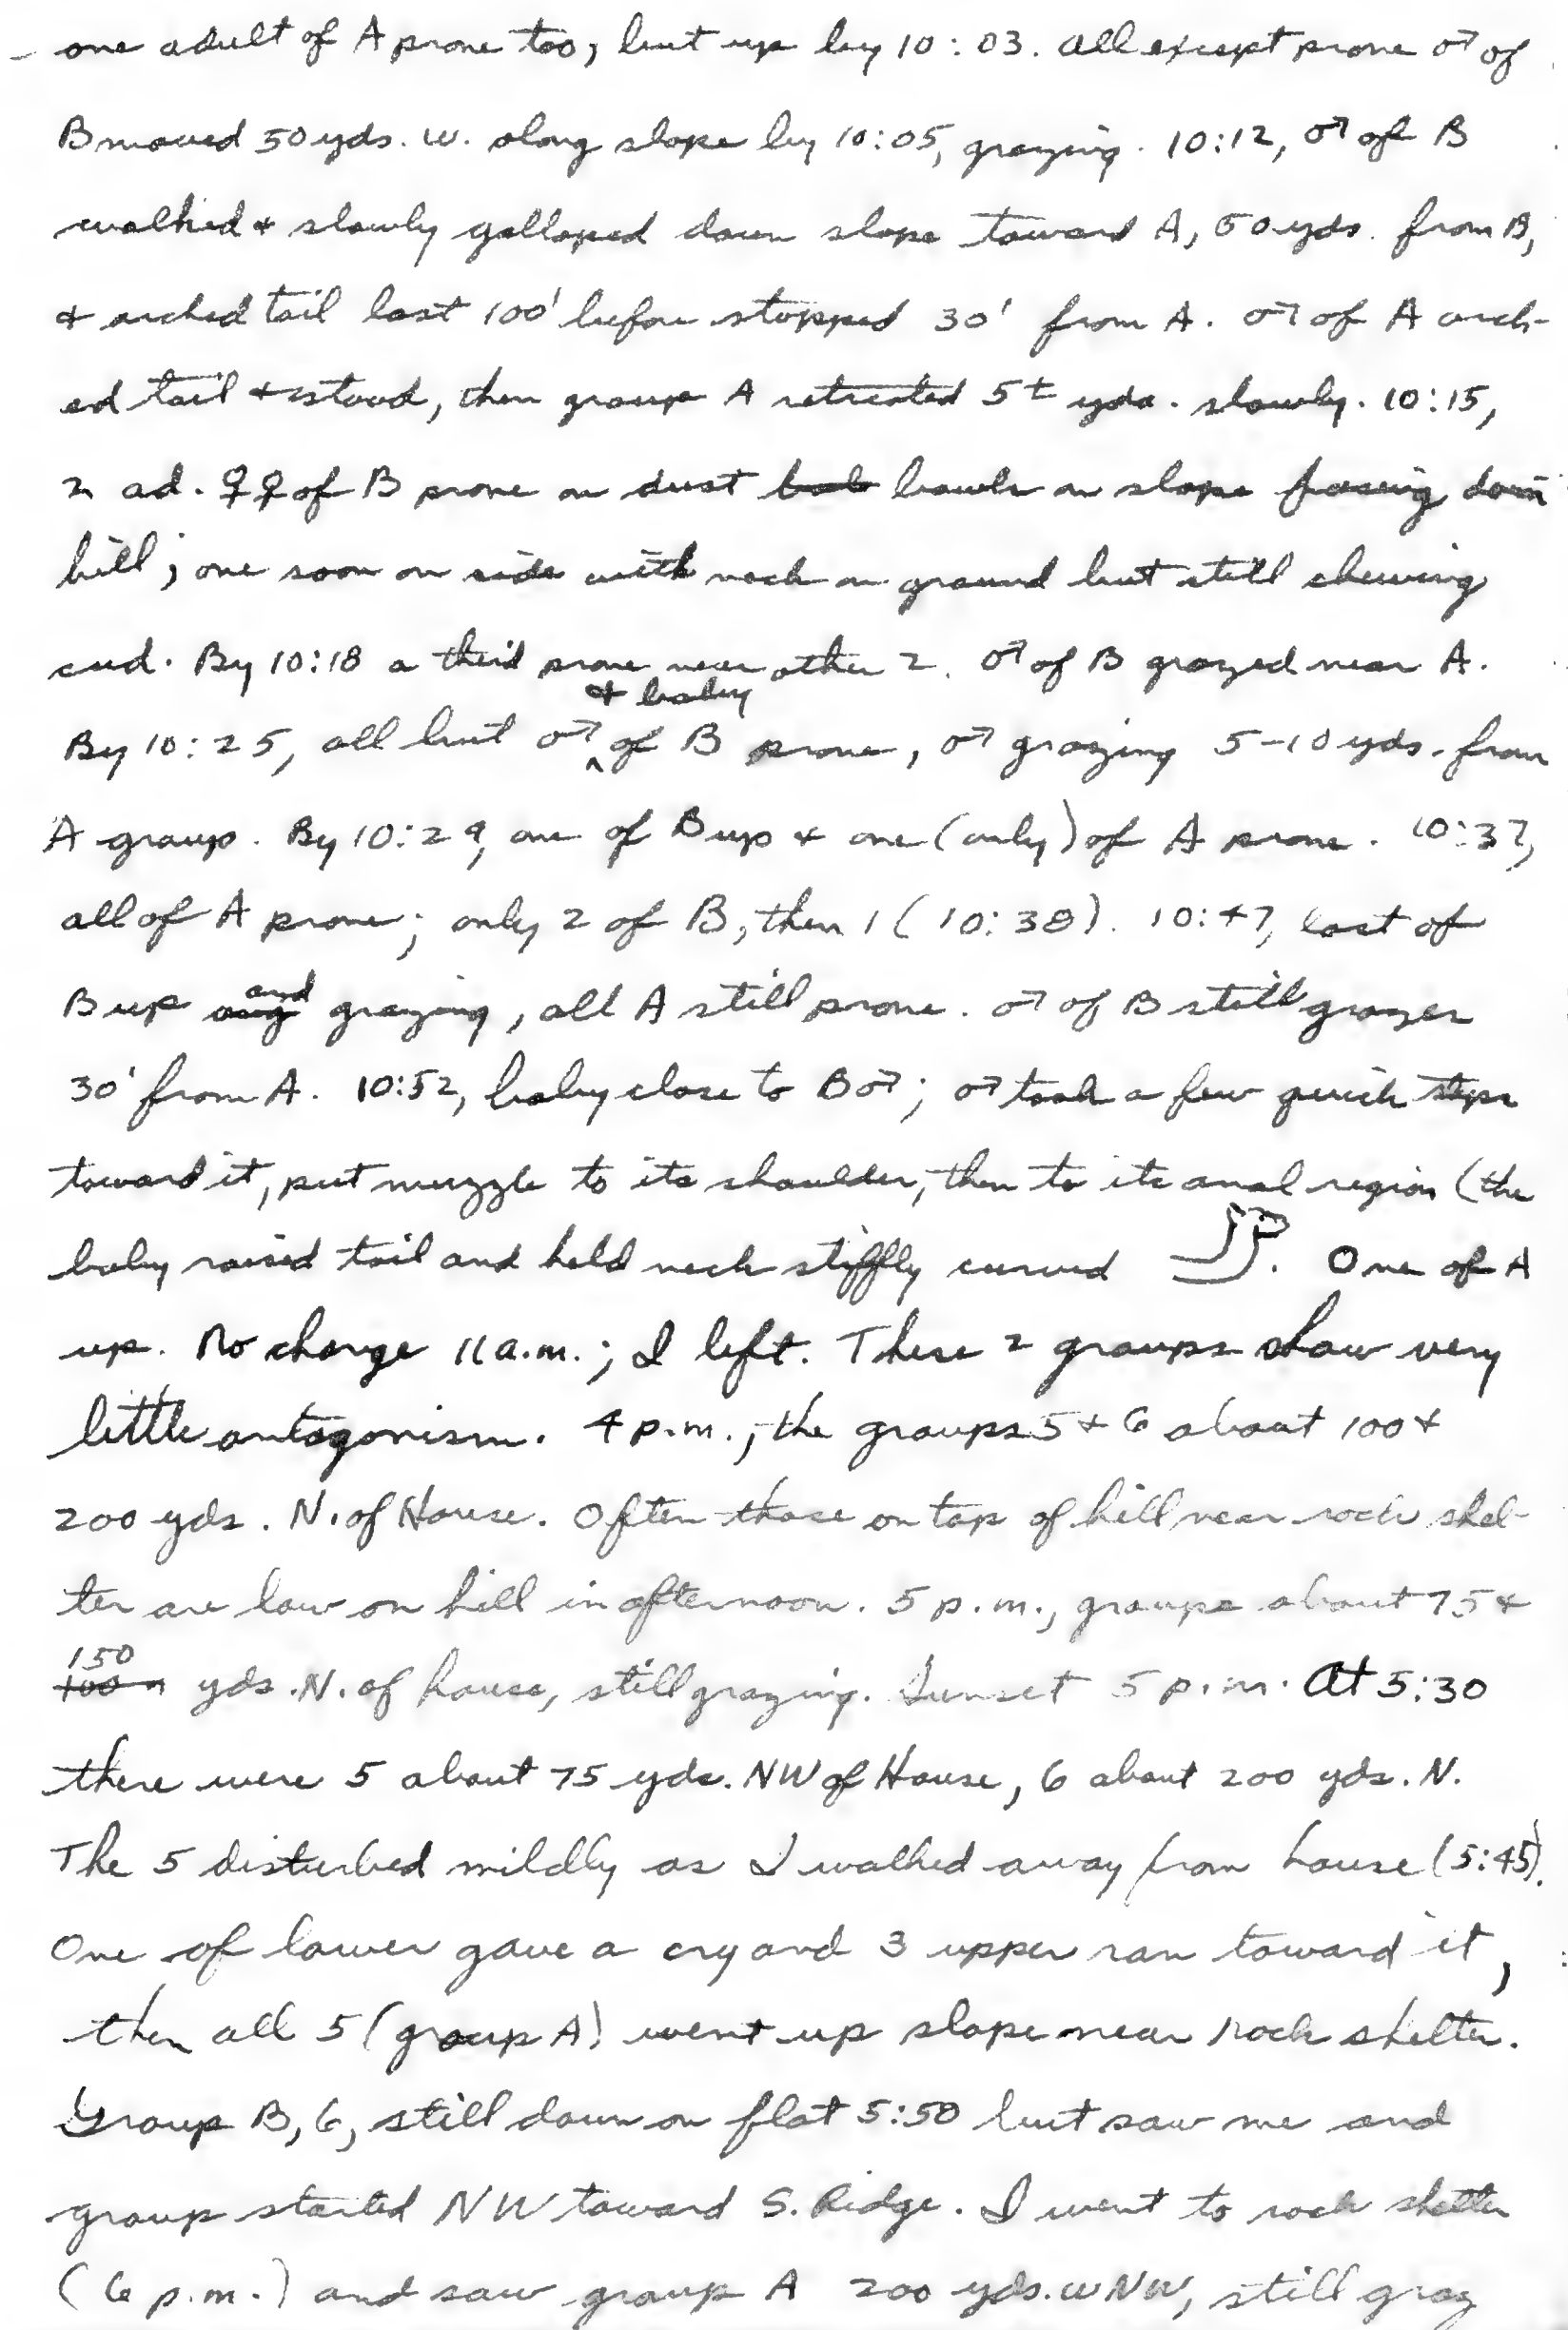 one adult of A prone too, but up by 10:03. All except prone ♂ of
B moved 50 yds. W. along slope by 10:05, grazing. 10:12, ♂ of B
walked & slowly galloped down slope toward A, 50 yds. from B,
& arched tail last 100' before stopped 30' from A. ♂ of A arch-
ed tail & stood, then group A retreated 5± yds. slowly. 10:15,
2 ad. ♀♀ of B prone on dust bowls on slope facing down
hill; one soon on side with neck on ground but still chewing
cud. By 10:18 a third prone near other 2. ♂ of B grazed near A.
& baby
By 10:25, all but ♂ ^ of B prone, ♂ grazing 5-10 yds. from
A group. By 10:29, one of B up & one (only) of A prone. 10:37,
all of A prone; only 2 of B, then 1 (10:38). 10:47, last of
B up and grazing, all A still prone. ♂ of B still grazes
30' from A. 10:52, baby close to B♂; ♂ took a few quick steps
toward it, put muzzle to its shoulder, then to its anal region (the
baby raised tail and held neck stiffly curved . One of A
up. No change 11 a.m.; I left. These 2 groups show very
little antagonism. 4 p.m., the groups 5 & 6 about 100 &
200 yds. N. of House. Often those on top of hill near rock shel-
ter are low on hill in afternoon. 5 p.m., groups about 75 &
150
yds. N. of house, still grazing. Sunset 5 p.m. At 5:30
there were 5 about 75 yds. NW of House, 6 about 200 yds. N.
The 5 disturbed mildly as I walked away from house (5:45).
One of lower gave a cry and 3 upper ran toward it,
then all 5 (group A) went up slope near rock shelter.
Group B, 6, still down on flat 5:50 but saw me and
group started NW toward S. Ridge. I went to rock shelter
(6 p.m.) and saw group A 200 yds. WNW, still graz